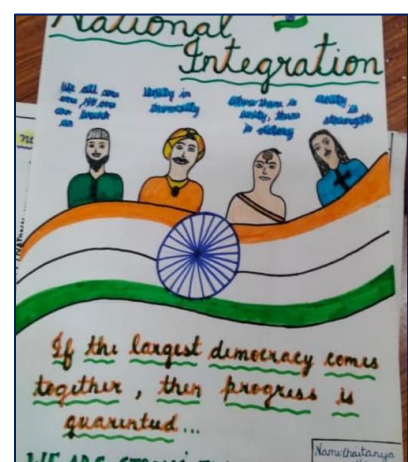 National
Integration
We all are
one, No one
can break
us
Unity in
Diversity
Where there is
unity, there
is victory
unity
is
strength
If the largest democracy comes
together, then progress is
guarented...
WE ARE
Name Chaitanya